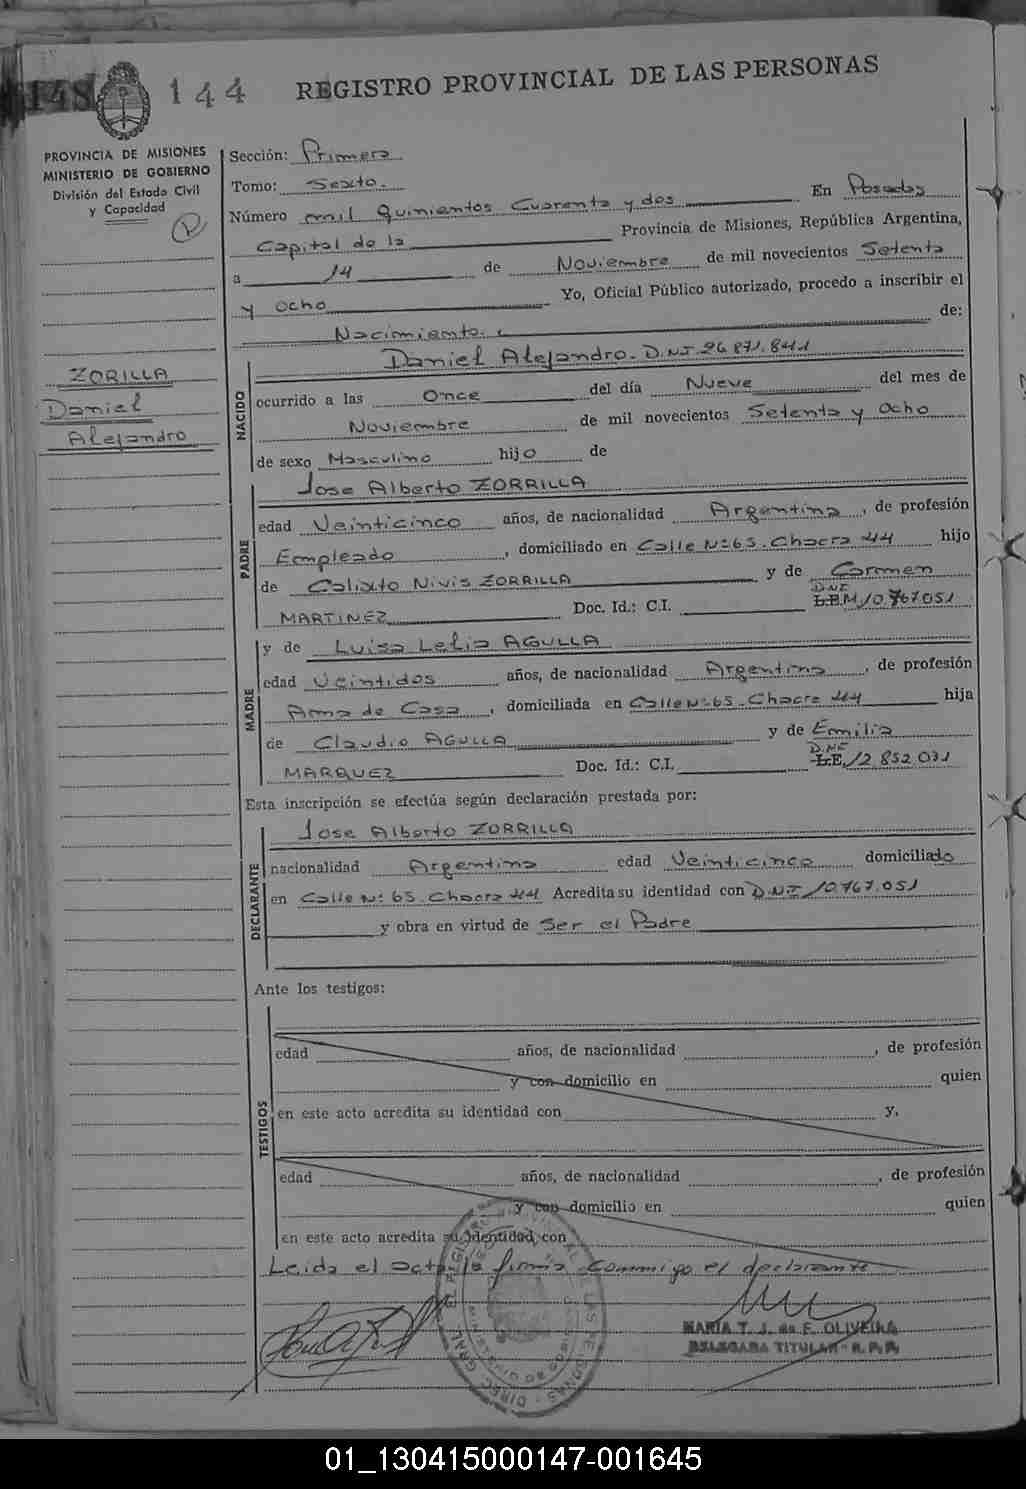 148
144
REGISTRO PROVINCIAL DE LAS PERSONAS
PROVINCIA DE MISIONES
MINISTERIO DE GOBIERNO
División del Estado Civil
y Capacidad
Sección: Primera
Tomo: Sexto.
Número mil Quinientos Cuarenta y dos En Posadas
Capital de la Provincia de Misiones, República Argentina,
a 14 de Noviembre de mil novecientos Setenta
y ocho Yo, Oficial Público autorizado, procedo a inscribir el
Nacimiento. de:
ZORILLA
Daniel
Alejandro
NACIDO
Daniel Alejandro. D.N.I. 26.871.841
ocurrido a las Once del día Nueve del mes de
Noviembre de mil novecientos Setenta y Ocho
de sexo Masculino hijo de
PADRE
Jose Alberto ZORRILLA
edad Veinticinco años, de nacionalidad Argentina, de profesión
Empleado, domiciliado en Calle Nº 65. Chacra 44 hijo
de Calixto Nivis ZORRILLA y de Carmen
MARTINEZ Doc. Id.: C.I. D.N.I. 10.767.051
MADRE
y de Luisa Lelia AGULLA
edad Veintidos años, de nacionalidad Argentina, de profesión
Ama de Casa, domiciliada en Calle Nº 65. Chacra 44 hija
de Claudio AGULLA y de Emilia
MARQUEZ Doc. Id.: C.I. D.N.I. L.E. 12.852.031
Esta inscripción se efectúa según declaración prestada por:
DECLARANTE
Jose Alberto ZORRILLA
nacionalidad Argentina edad Veinticinco domiciliado
en Calle Nº 65. Chacra 44 Acredita su identidad con D.N.I. 10.767.051
y obra en virtud de Ser el Padre
Ante los testigos:
TESTIGOS
edad años, de nacionalidad, de profesión
y con domicilio en quien
en este acto acredita su identidad con y,
edad años, de nacionalidad, de profesión
y con domicilio en quien
en este acto acredita su identidad con
Leida el acta la firma conmigo el declarante
MARIA T. J. de F. OLIVEIRA
DELEGADA TITULAR - R. P. P.
01_130415000147-001645